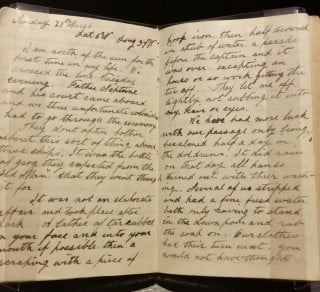 Sunday 23d
Lat 2°N Long 29W
I am north of the sun for the
first time in my life. We
crossed the line Tuesday
evening. Father Neptune
and his court came aboard
and we three unfortunate
had to go through the ceremony.
They dont often bother
about this sort of thing aboard
these ships. It was the bottle
of grog they expected from the
"Old Man" that they went through
it for
It was not an elaborate
affair and took place after
dark. A lather of tar rubbed
on your face and into your
mouth if possible then a
scraping with a piece of
hoop iron then half drowned
in a tub of water, a parade
before the captain and it
was over excepting an
hours or so work getting the
tar off. They let me off
lightly not rubbing it into
my hair or eyes.
We have had more luck
with our passage only being
becalmed half a day in
the doldrums. It did rain
on that day, all hands
turned out with their wash-
ing. Several of us stripped
and had a fine fresh water
bath only having to stand
in the downpour and rub
the soap on. Our clothes
had their turn next. You
would not have thought